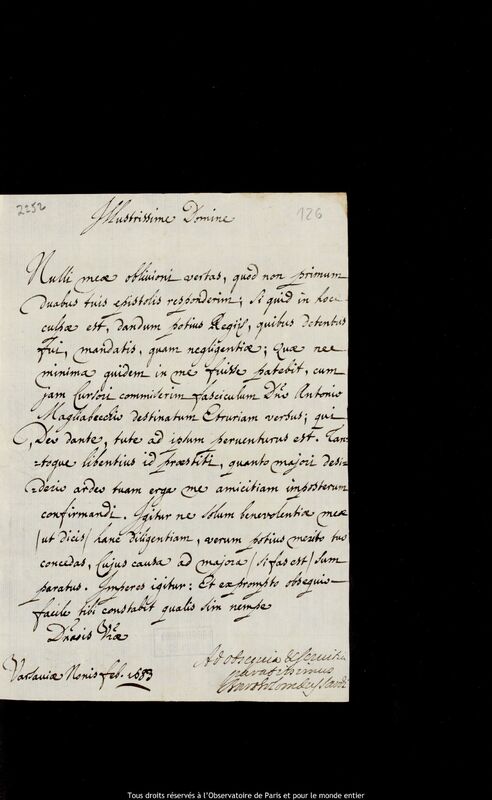 2252
126
Illustrissime Domine
Nulli meæ oblivioni vertas, quod non primum
duabus tuis epistolis responderim; si quid in hoc
culpæ est, dandum potius Regiis, quibus detentus
fui, mandatis, quam negligentiæ; Quæ nec
minima quidem in me fuisse patebit, cum
jam Cursori commiserim fasciculum Dno Antonio
Magliabecchio destinatum Etruriam versus; qui
Deo dante, tute ad ipsum perventurus est. Tan-
toque libentius id præstiti, quanto majori desi-
derio ardeo tuam erga me amicitiam imposterum
confirmandi. Igitur ne solum benevolentiæ meæ
/ut dicis/ hanc diligentiam, verum potius merito tuo
concedas, Cujus causa ad majora /si fas est/ sum
paratus. Imperes igitur: Et ex prompto obsequio
facile tibi constabit qualis sim nempe
Dnōis Vræ
Ad obsequia & servitia
paratissimus
Varsaviæ Nonis feb. 1683
Tous droits réservés à l'Observatoire de Paris et pour le monde entier